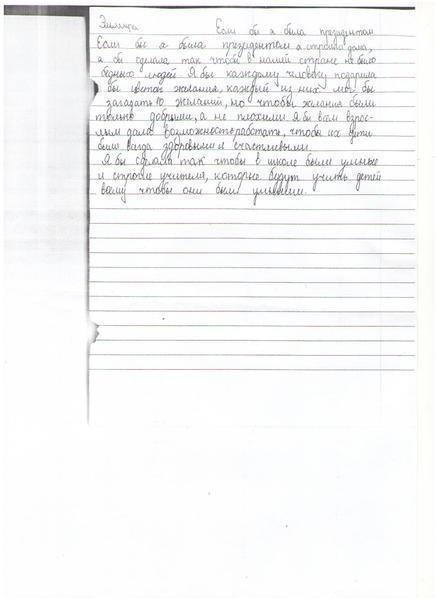 Эльмира Если бы я была президентом
Если бы я была президентом я строила дома,
я бы сделала так чтобы в нашей стране не было
бедных людей Я бы каждому человеку подарила
бы цветок желания, каждый из них мог бы
загадать 10 желаний, но чтобы желания были
только добрыми, а не плохими Я бы всем взрос-
лым дала возможность работать, чтобы их дети
были всегда здоровыми и счастливыми.
Я бы сделала так чтобы в школе были умные
и строгие учителя, которые будут учить детей
всему чтобы они были умными.